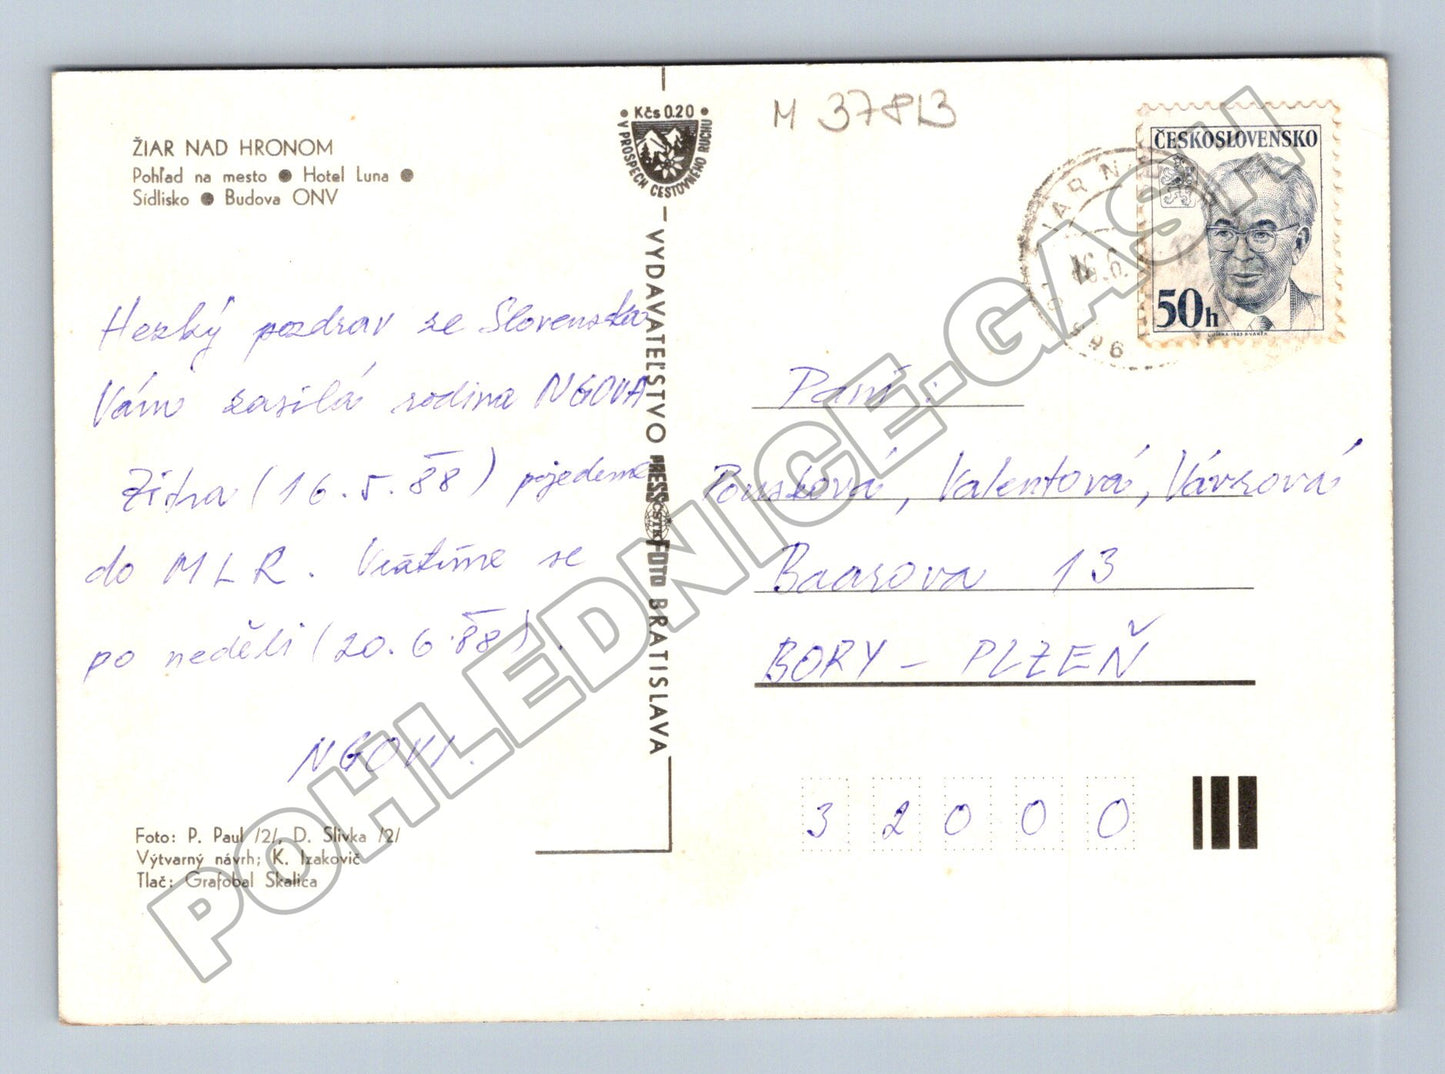 ŽIAR NAD HRONOM
Pohľad na mesto ● Hotel Luna ●
Sídlisko ● Budova ONV
Hezký pozdrav ze Slovenska
Vám zasílá rodina NGOVA
Zítra (16.5.88) pojedeme
do MLR. Vrátíme se
po neděli (20.6.88).
NGOVI.
Foto: P. Paul /2/, D. Slivka /2/
Výtvarný návrh; K. Izakovič
Tlač: Grafobal Skalica
• Kčs 0.20 •
V PROSPECH CESTOVNÉHO RUCHU
VYDAVATEĽSTVO PRESSFOTO BRATISLAVA
ČSTK
M 37813
ČESKOSLOVENSKO
50h
ŽIAR N
16.6.
96
Paní:
Pouzková, Valentová, Vávrová
Baarova 13
BORY - PLZEŇ
3 2 0 0 0
POHLEDNICE-GASH